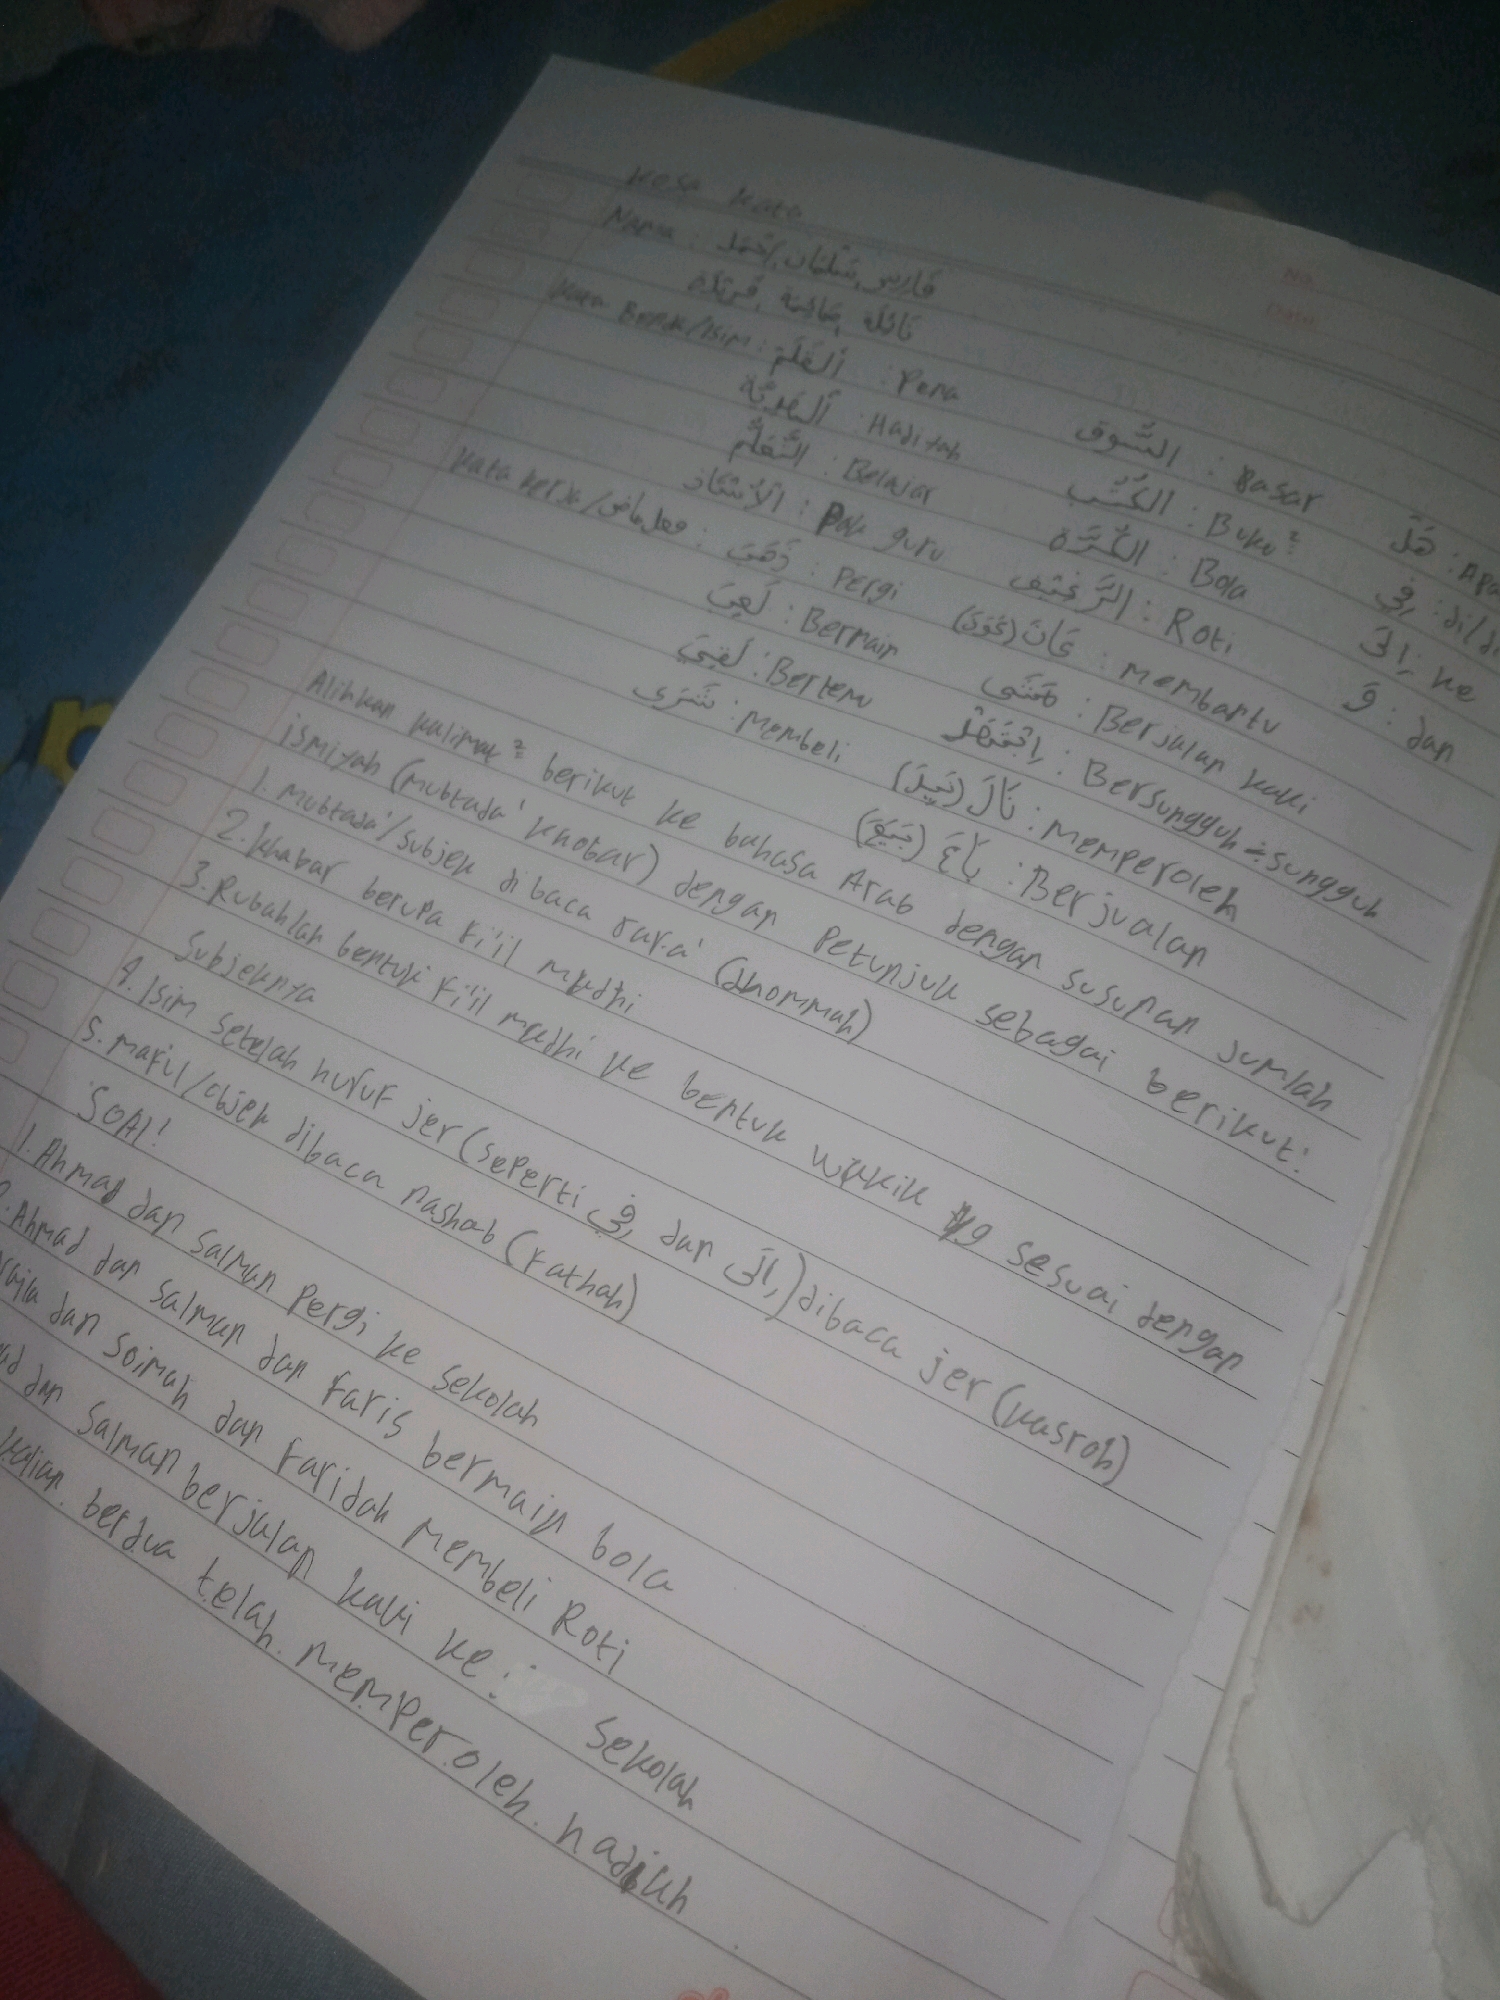 Kosa Kata
Nama : فارس, سلمان, احمد
نائلة, صائمة, فريدة
Kata Benda/isim : اَلْقَلَمَ : Pena
اَلْهَدِيَّة : Hadiyah السُّوق : Pasar
التَّعَلُّم : Belajar الكُتُب : Buku² هَلْ : Apa
الْأُسْتَاذ : Pak guru الْكُرَة : Bola فِي : di/di
Kata kerja/فعل ماض : ذَهَبَ : Pergi الرَّغِيْف : Roti اِلَى : ke
لَعِبَ : Bermain عَانَ (عَوَنَ) : membantu وَ : dan
لَقِيَ : Bertemu مَشَى : Berjalan kaki
شَرَى : Membeli اِجْتَهَدَ : Bersungguh-sungguh
نَالَ (نَيِلَ) : memperoleh
بَاعَ (بَيَعَ) : Berjualan
Alihkan kalimat² berikut ke bahasa Arab dengan susunan jumlah
ismiyah (mubtada' khobar) dengan petunjuk sebagai berikut:
1. Mubtada'/subjek dibaca rafa' (dhommah)
2. Khabar berupa fi'il madhi
3. Rubahlah bentuk fi'il madhi ke bentuk yg sesuai dengan
subjeknya
4. Isim setelah huruf jer (seperti فِي dan اِلَى) dibaca jer (kasroh)
5. maful/objek dibaca nashob (fathah)
SOAl!
1. Ahmad dan Salman Pergi ke sekolah
2. Ahmad dan Salman dan Faris bermain bola
dan Soimah dan Faridah membeli Roti
dan Salman berjalan kaki ke sekolah
kalian berdua telah memperoleh